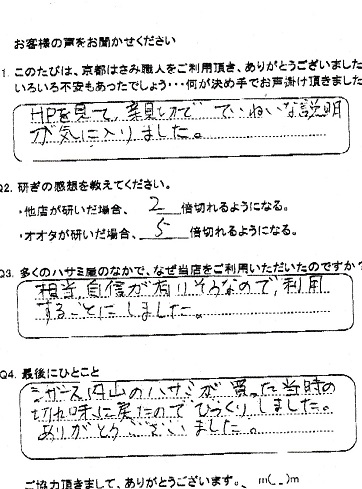 お客様の声をお聞かせください
1. このたびは、京都はさみ職人をご利用頂き、ありがとうございました
いろいろ不安もあったでしょう・・・何が決め手でお声掛け頂きました
HPを見て、親切で ていねいな説明
が気に入りました。
Q2. 研ぎの感想を教えてください。
・他店が研いだ場合、 2 倍切れるようになる。
・オオタが研いだ場合、 5 倍切れるようになる。
Q3. 多くのハサミ屋のなかで、なぜ当店をご利用いただいたのですか？
相当、自信が有りそうなので、利用
することにしました。
Q4. 最後にひとこと
シザース内山のハサミが買った当時の
切れ味に戻たのでびっくりしました。
ありがとうございました。
ご協力頂きまして、ありがとうございます。 m(_ _)m